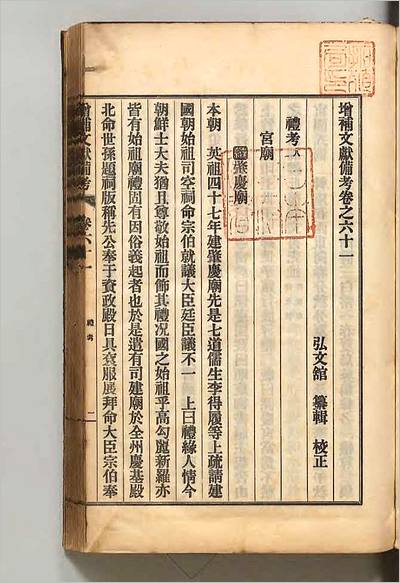 增補文獻備考卷之六十一
弘文館 纂輯 校正
禮考八
宮廟
肇慶廟
本朝 英祖四十七年建肇慶廟先是七道儒生李得履等上疏請建
國朝始祖司空祠命宗伯就議大臣廷臣議不一 上曰禮緣人情今
朝鮮士大夫猶且尊敬始祖而飭其禮况國之始祖乎高勾麗新羅亦
皆有始祖廟禮固有因俗義起者也於是遣有司建廟於全州慶基殿
北命世孫題祠版稱先公奉于資政殿日具袞服展拜命大臣宗伯奉
增補文獻備考 卷六十一 禮考 一